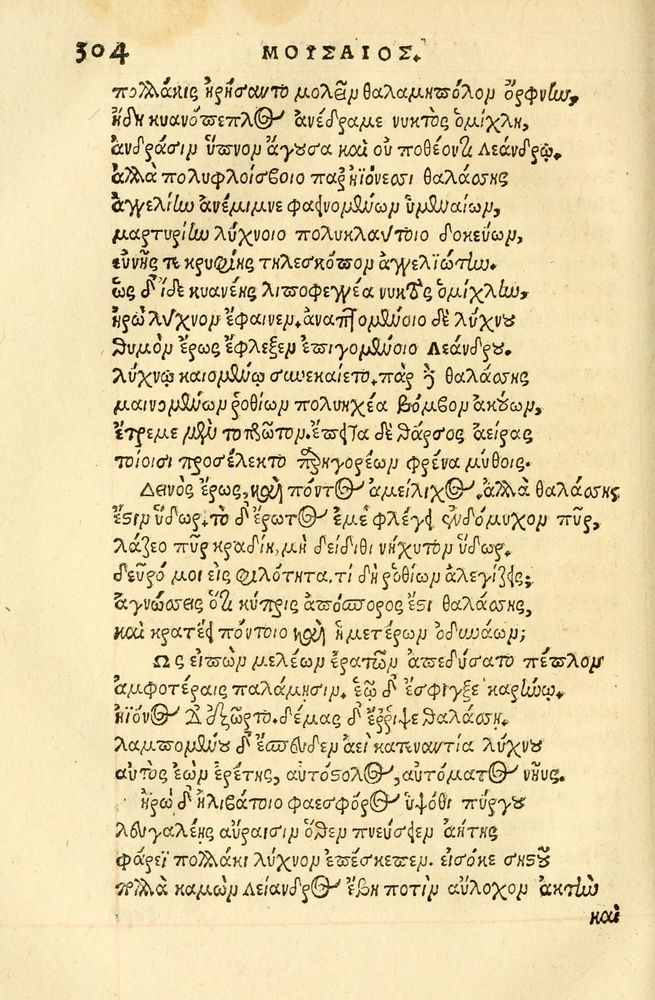 304 ΜΟΥΣΑΙΟΣ.
πολλάκις ἠρήσαντο μολεῖν θαλαμηπόλον ὄρφνην,
ἤδη κυανόπεπλος ἀνέδραμε νυκτὸς ὁμίχλη,
ἀνδράσιν ὕπνον ἄγουσα καὶ οὐ ποθέοντι Λεάνδρῳ.
ἀλλὰ πολυφλοίσβοιο παρ' ἠϊόνεσσι θαλάσσης
ἀγγελίην ἀνέμιμνε φαεινομένων ὑμεναίων,
μαρτυρίην λύχνοιο πολυκλαύτοιο δοκεύων,
εὐνῆς τε κρυφίης τηλεσκόπον ἀγγελϊώτην.
ὡς δ' ἴδε κυανέης λιποφεγγέα νυκτὸς ὁμίχλην,
ἡρὼ λύχνον ἔφαινεν. ἀναπτομένοιο δὲ λύχνου
θυμὸν ἔρως ἔφλεξεν ἐπειγομένοιο Λεάνδρου.
λύχνῳ καιομένῳ συνεκαίετο. πὰρ δὲ θαλάσσης
μαινομένων ῥοθίων πολυηχέα βόμβον ἀκούων,
ἔτρεμε μὲν τοπρῶτον. ἔπειτα δὲ θάρσος ἀείρας
τοίοισι προσέλεκτο παρηγορέων φρένα μύθοις.
Δεινὸς ἔρως, καὶ πόντος ἀμείλιχος. ἀλλὰ θαλάσσης
ἔστιν ὕδωρ. τὸ δ' ἔρωτος ἐμὲ φλέγει ἐνδόμυχον πῦρ,
λάζεο πῦρ κραδίη, μὴ δείδιθι νήχυτον ὕδωρ.
δεῦρό μοι εἰς φιλότητα. τί δὴ ῥοθίων ἀλεγίζεις;
ἀγνώσσεις ὅτι κύπρις ἀπόσπορος ἔστι θαλάσσης,
καὶ κρατέει πόντοιο καὶ ἡμετέρων ὀδυνάων;
Ως εἰπὼν μελέων ἐρατῶν ἀπεδύσατο πέπλον
ἀμφοτέραις παλάμησιν. ἑῷ δ' ἔσφιγξε καρήνῳ.
ἠϊόνος δ' ἐξῶρτο. δέμας δ' ἔῤῥιψε θαλάσσῃ.
λαμπομένου δ' ἔσπευδεν ἀεὶ κατεναντία λύχνου
αὐτὸς ἐὼν ἐρέτης, αὐτόστολος, αὐτόματος νηῦς.
Ἡρὼ δ' ἠλιβάτοιο φαεσφόρος ὑψόθι πύργου
λευγαλέης αὔραισιν ὅθεν πνεύσειεν ἀήτης
φάρεϊ πολλάκι λύχνον ἐπέσκεπεν. εἰσόκε σηστοῦ
πολλὰ καμὼν Λείανδρος ἔβη ποτὶν αὔλοχον ἀκτὴν
καὶ